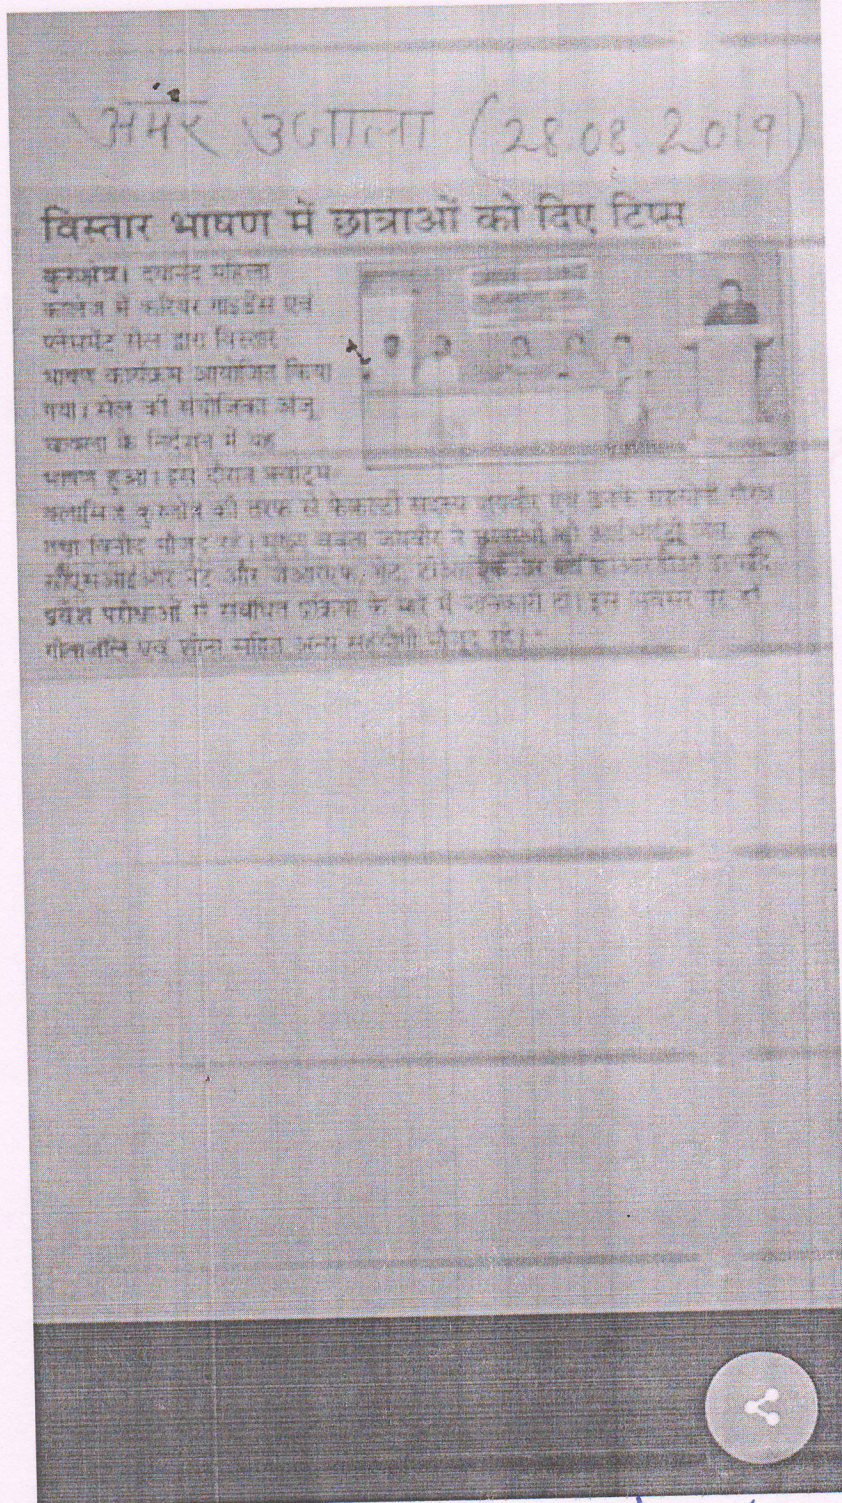 अमर उजाला (28.08.2019)
विस्तार भाषण में छात्राओं को दिए टिप्स
कुरुक्षेत्र। दयानंद महिला
कालेज में करियर गाइडेंस एवं
प्लेसमेंट सेल द्वारा विस्तार
भाषण कार्यक्रम आयोजित किया
गया। सेल की संयोजिका अंजू
चावला के निर्देशन में यह
भाषण हुआ। इस दौरान
क्लासिज कुरुक्षेत्र की तरफ से फेकल्टी सदस्य जयवीर एवं उनके सहयोगी गौरव
तथा विनोद मौजूद रहे। मुख्य वक्ता जयवीर ने छात्राओं को आईआईटी जैम,
सीएसआईआर नेट और जेआरएफ, गेट,
प्रवेश परीक्षाओं से संबंधित प्रक्रिया के बारे में जानकारी दी। इस अवसर पर डॉ
गीतांजलि एवं सहित अन्य सहयोगी मौजूद रहे।